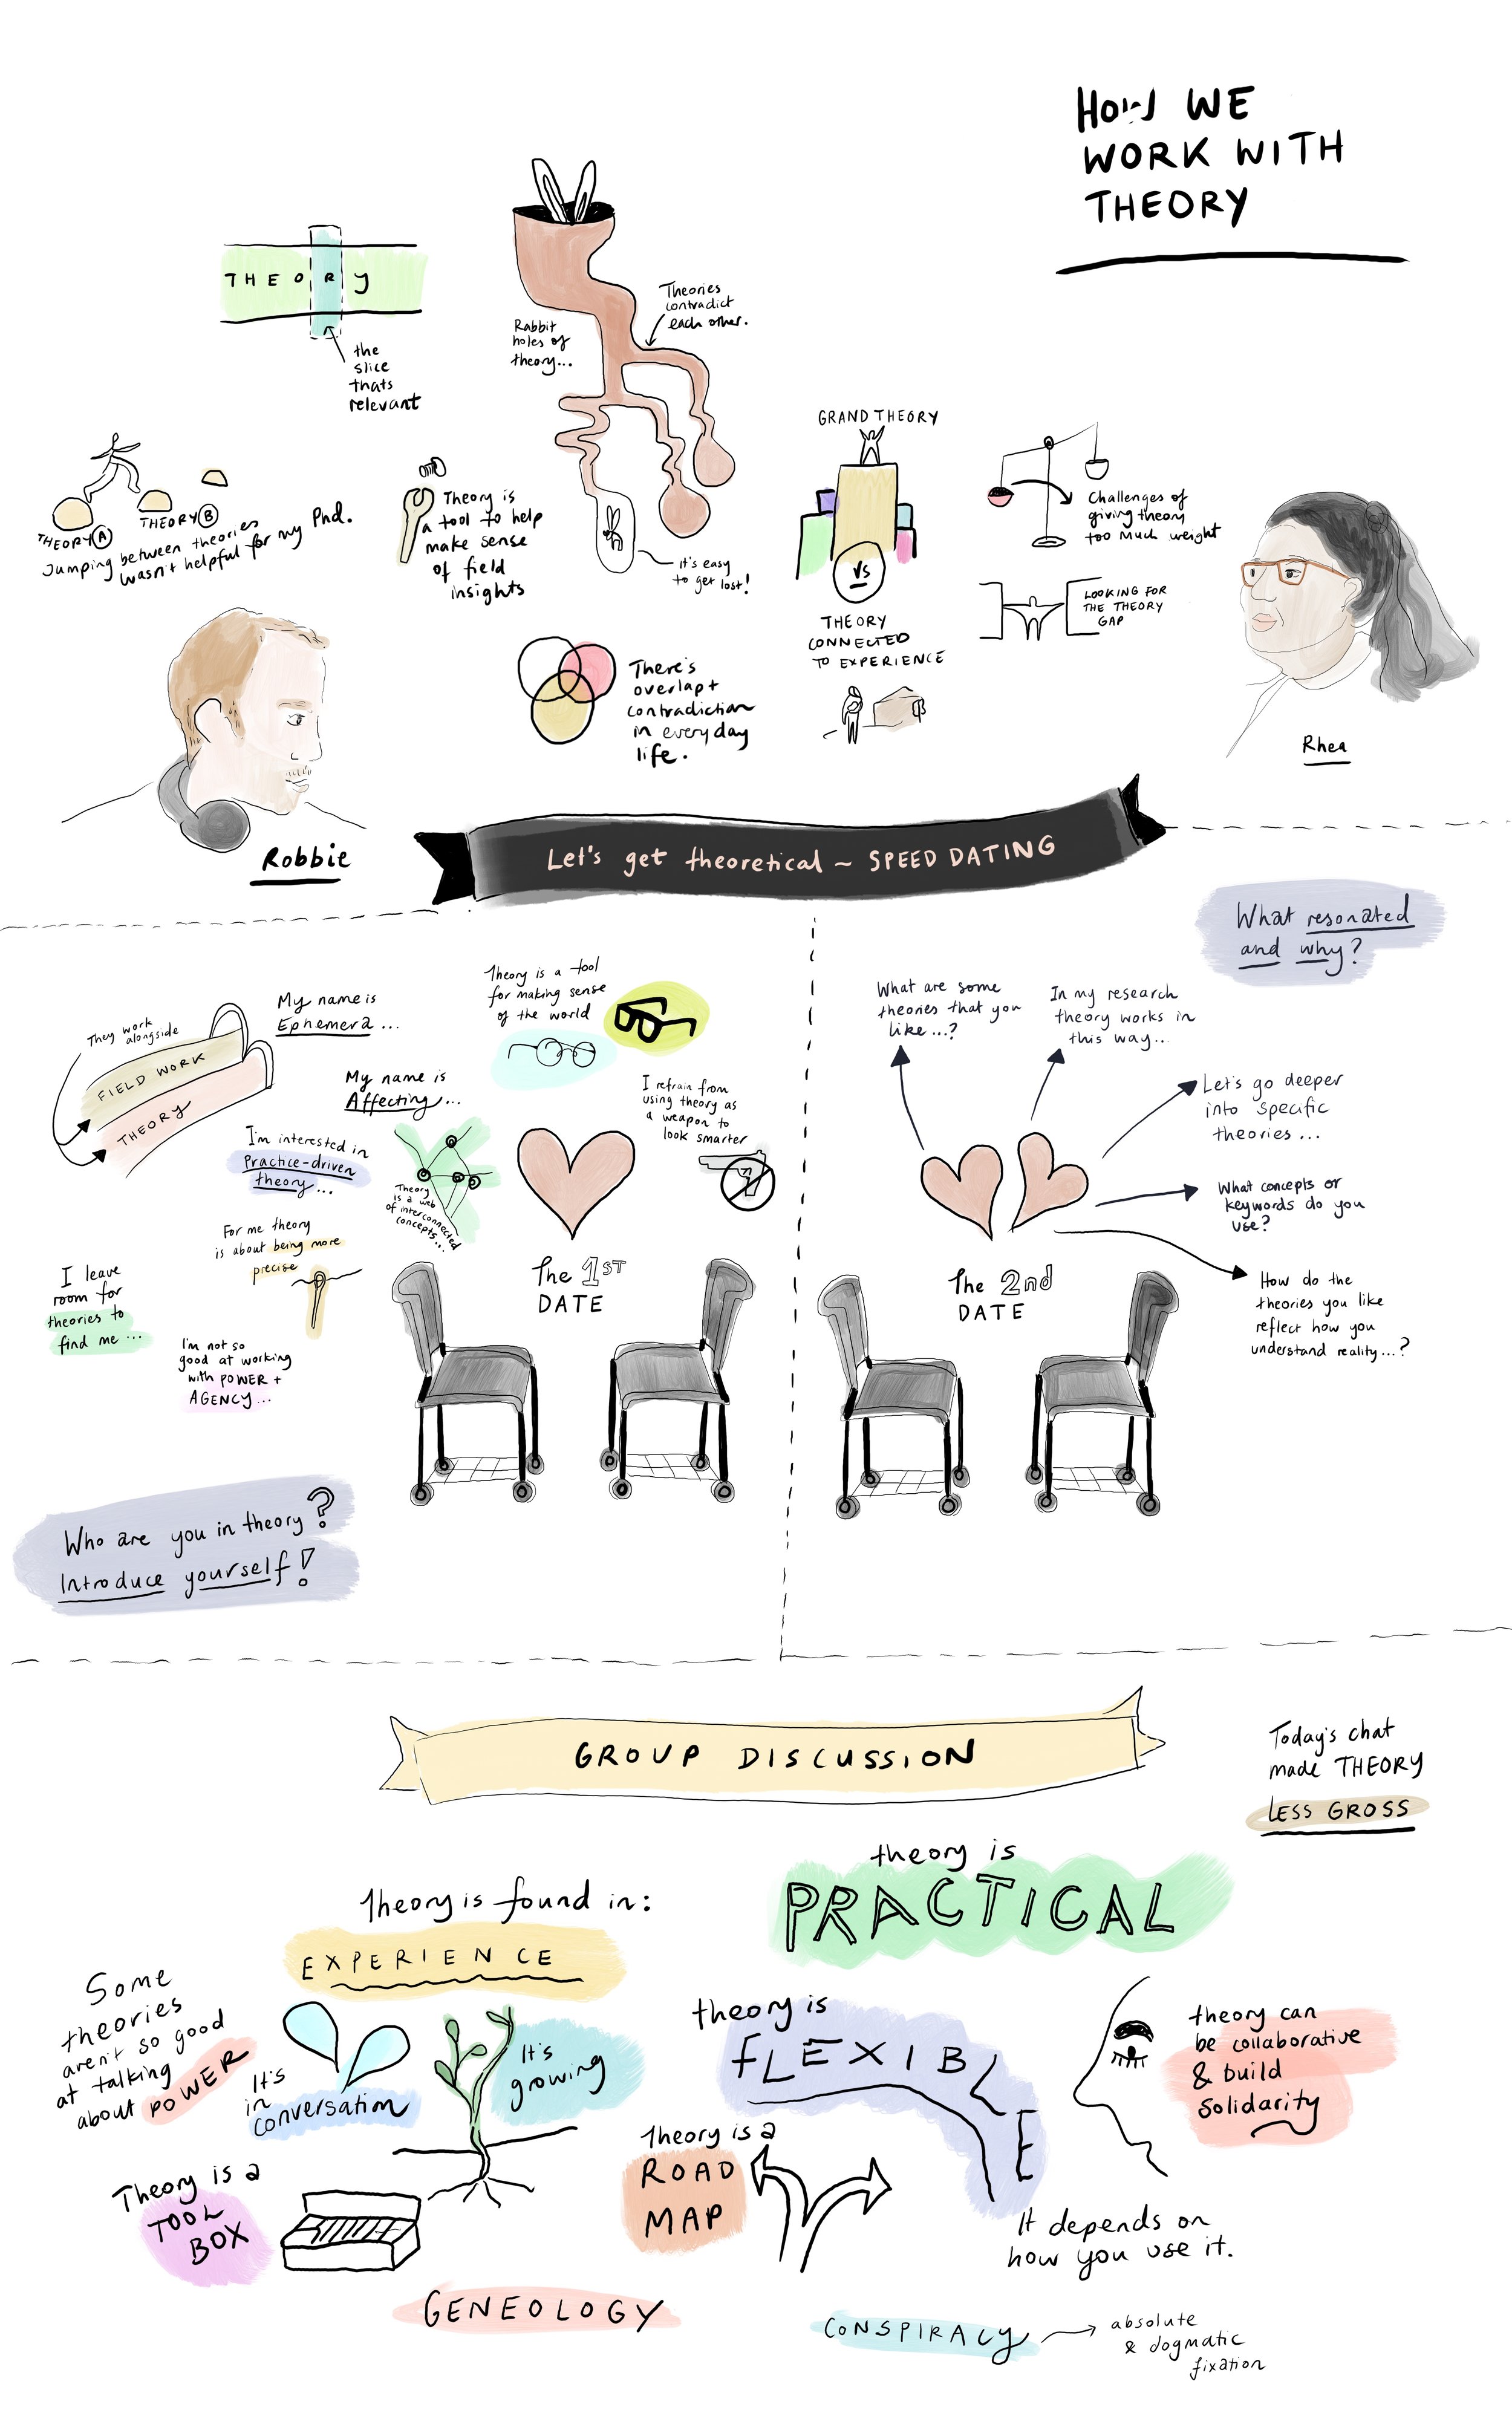 HOW WE
WORK WITH
THEORY
THEORY
the
slice
thats
relevant
Rabbit
holes of
theory...
Theories
contradict
each other.
it's easy
to get lost!
THEORY A
THEORY B
Jumping between theories
wasn't helpful for my Phd.
Theory is
a tool to help
make sense
of field
insights
There's
overlap +
contradiction
in everyday
life.
GRAND THEORY
VS
THEORY
CONNECTED
TO EXPERIENCE
Challenges of
giving theory
too much weight
LOOKING FOR
THE THEORY
GAP
Robbie
Rhea
Let's get theoretical ~ SPEED DATING
They work
alongside
FIELD WORK
THEORY
My name is
Ephemera...
Theory is a tool
for making sense
of the world
My name is
Affecting...
I refrain from
using theory as
a weapon to
look smarter
I'm interested in
Practice-driven
theory...
Theory
is a web
of interconnected
concepts...
For me theory
is about being more
precise
I leave
room for
theories to
find me...
I'm not so
good at working
with POWER +
AGENCY...
The 1ST
DATE
Who are you in theory?
Introduce yourself!
What resonated
and why?
What are some
theories that you
like...?
In my research
theory works in
this way...
Let's go deeper
into specific
theories...
What concepts or
keywords do you
use?
How do the
theories you like
reflect how you
understand reality...?
The 2nd
DATE
GROUP DISCUSSION
Today's chat
made THEORY
LESS GROSS
Theory is found in:
EXPERIENCE
theory is
PRACTICAL
Some
theories
aren't so good
at talking
about POWER
It's
in
conversation
It's
growing
theory is
FLEXIBLE
theory can
be collaborative
& build
solidarity
Theory is a
TOOL
BOX
Theory is a
ROAD
MAP
It depends on
how you use it.
GENEOLOGY
CONSPIRACY
absolute
& dogmatic
fixation